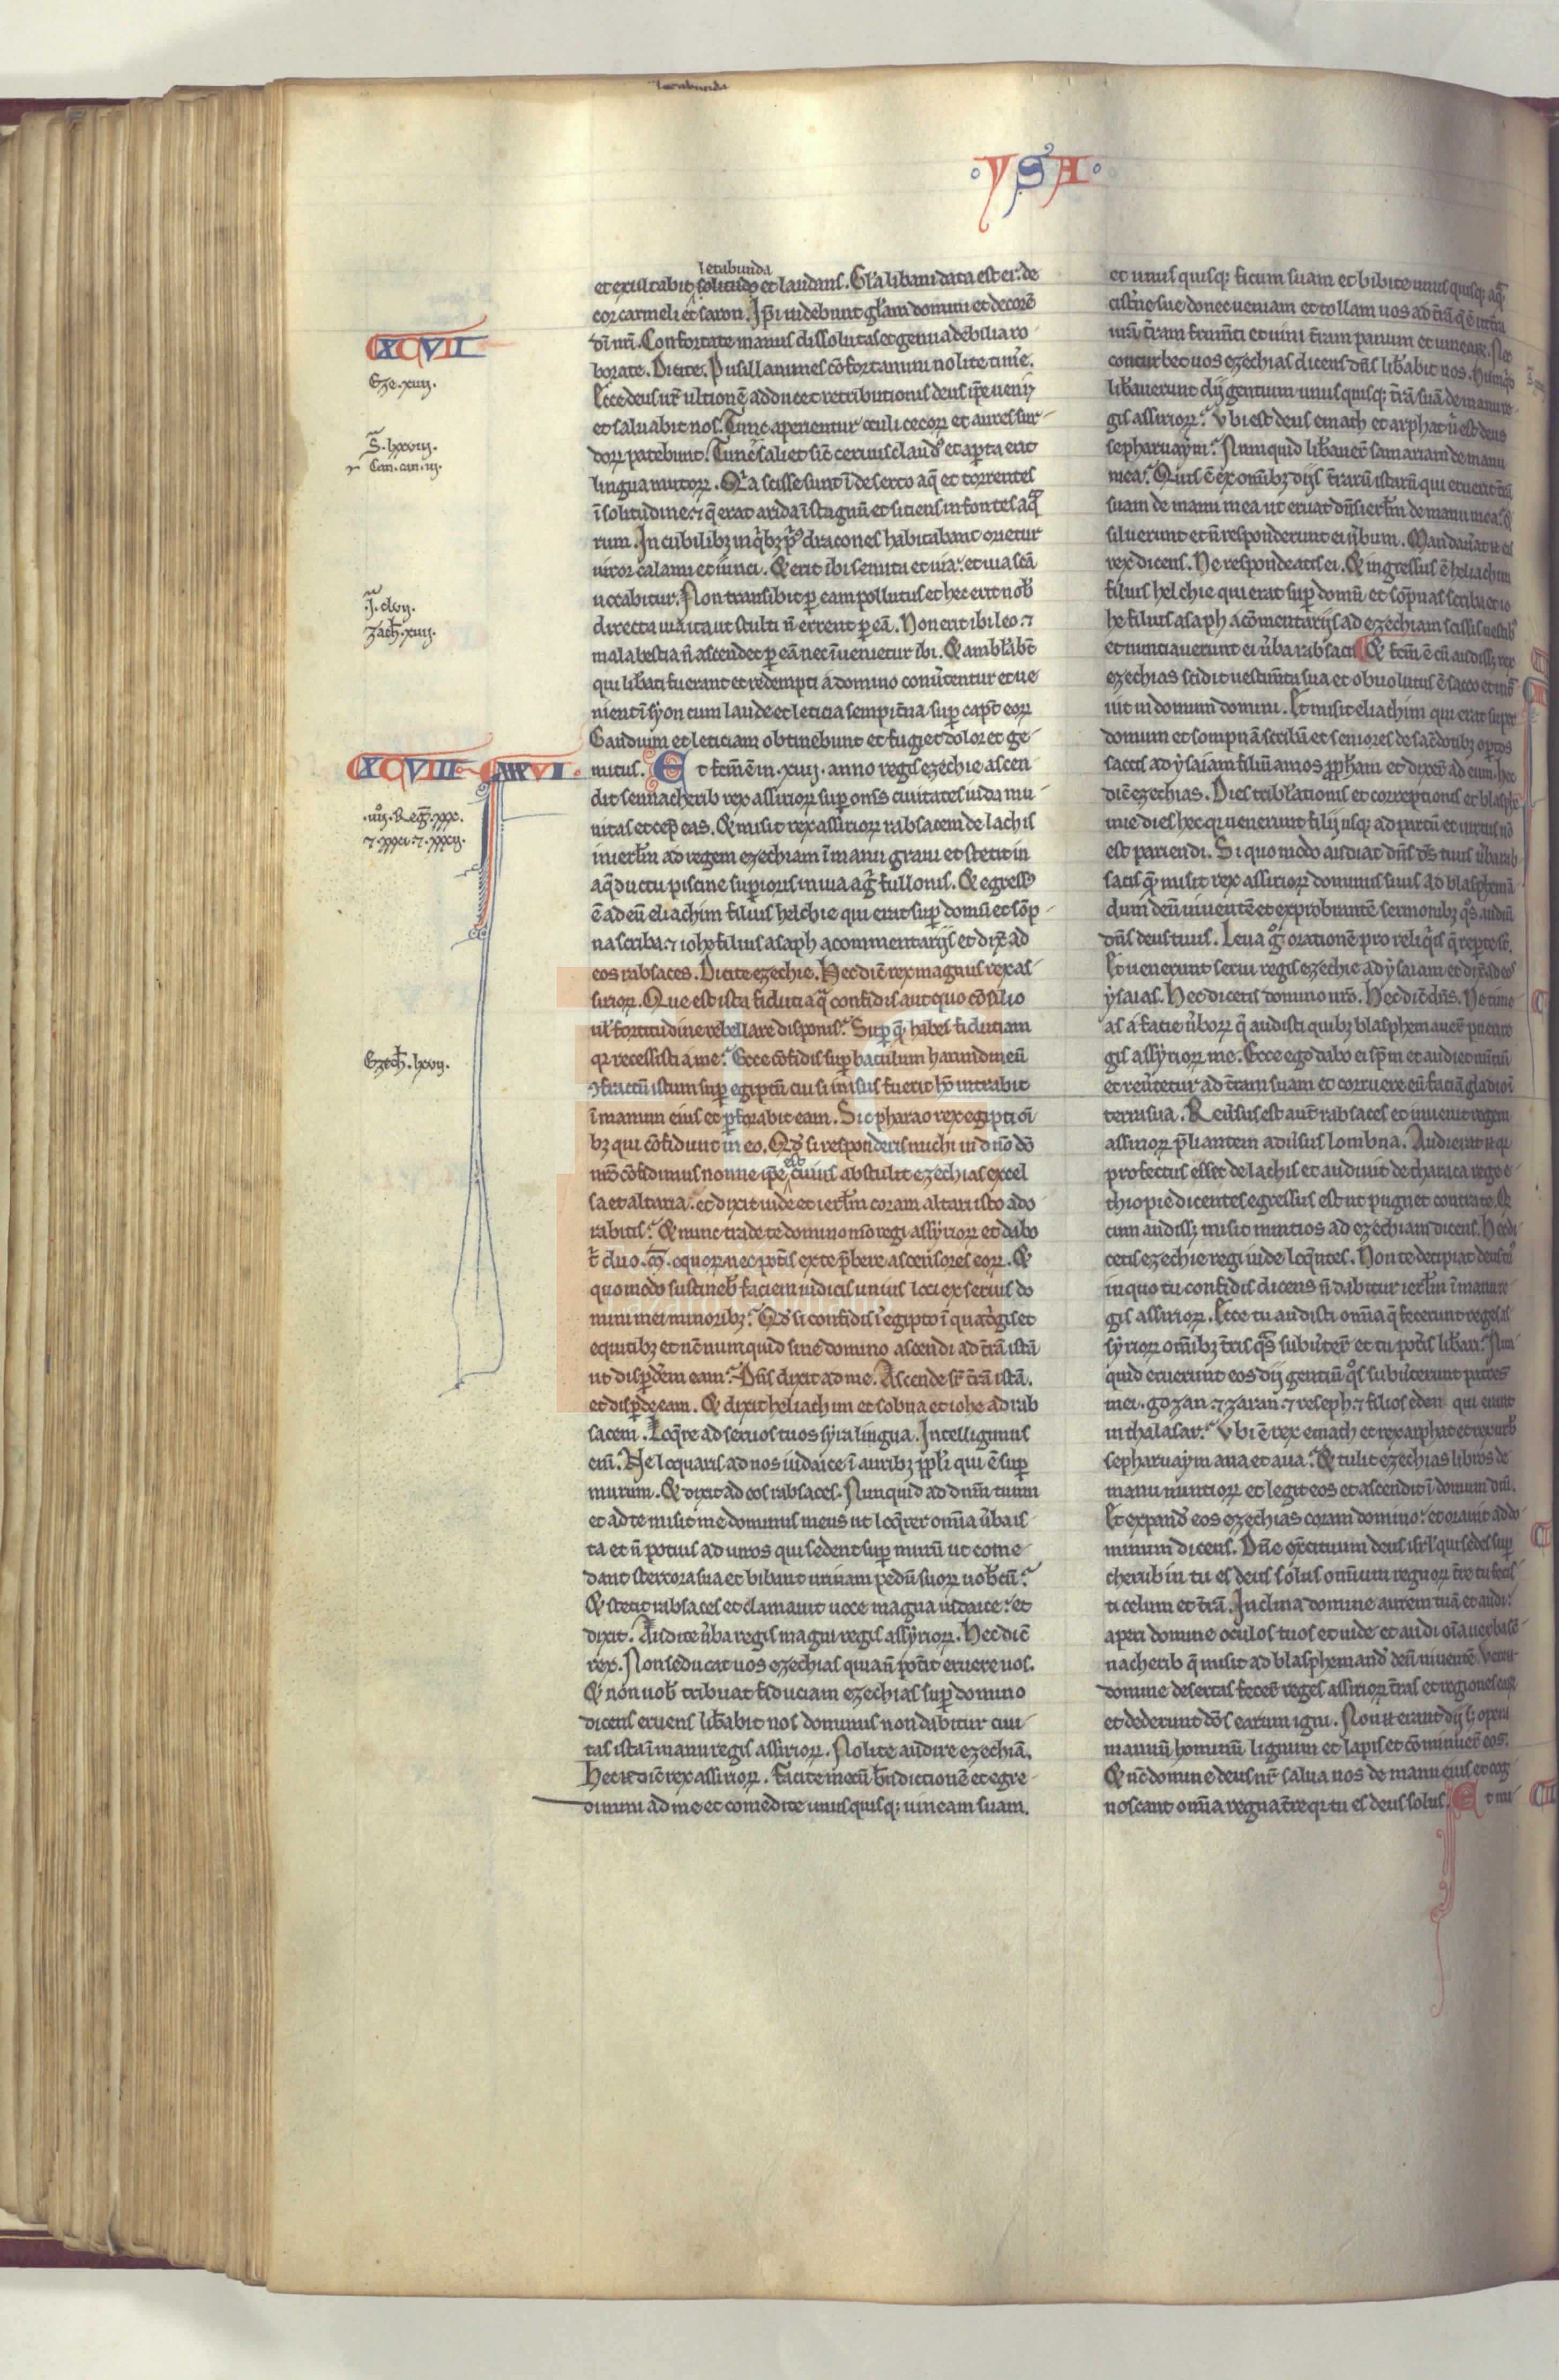 letabunda
·YSA·
letabunda
et exultabit solitudo et laudans. Gl'a libani data est ei: de
cor carmeli et saron. Ip̄i uidebunt gl'am domini et decorē
dī nr̄i. Confortate manus dissolutas et genua debilia ro-
borate. Dicite. Pusillanimes cōfortamini nolite tim̄e.
Ecce deus ur̄ ultionē adducet retributionis deus ip̄e ueniꝫ
et saluabit nos. Tunc aperientur oculi cecoꝝ et aures sur-
doꝝ patebunt. Tunc saliet sic̄ ceruus claudꝰ et aperta erit
lingua mutoꝝ. Qia scisse sunt ī deserto aq̄ et torrentes
ī solitudine. ⁊ q̄ erat arida ī stagnū et sitiens in fontes aqͣ
rum. In cubilibꝫ in qͥbꝫ pͥꝰ dracones habitabant orietur
uiror calami et iunci. Et erit ibi semita et uia: et uia scā
uocabitur. Non transibit ꝑ eam pollutus et hec erit nob̄
directa uia ita ut stulti n̄ errent ꝑ eā. Non erit ibi leo. ⁊
mala bestia n̄ ascendet ꝑ eā nec īuenietur ibi. Et amb'lab̄t
qui lib̄ati fuerant et redempti a domino conūtentur et ue
nient ī syon cum laude et leticia sempit̄na sup̱ capt̄ eoꝝ
Gaudium et leticiam obtinebunt et fugiet dolor et ge-
mitus. Et fc̄m ē in .xiiii. anno regis ezechie ascen
dit sennacherib rex assirioꝝ sup̱ om̄s ciuitates iuda mu-
nitas et cep̄ eas. Et misit rex assirioꝝ rabsacem de lachis
in ierl̄m ad regem ezechiam ī manu graui et stetit in
aq̄ductu piscine sup̱ioris in uia agͥ fullonis. Et egressꝰ
ē ad eū eliachim filius helchie qui erat sup̱ domū et sōp-
na scriba. ⁊ iohe filius asaph a commentarijs et dix̄ ad
eos rabsaces. Dicite ezechie. Hec dic̄ rex magnus rex as-
sirioꝝ. Que est ista fiducia qͣ confidis aut quo cōsilio
ul' fortitudine rebellare disponis? Sup̱ q̄ habes fiduciam
qꝛ recessisti a me? Ecce cōfidis sup̱ baculum harundineū
ꝯfractū istum sup̱ egiptū cui si inisus fuerit hō intrabit
ī manum eius et ꝑforabit eam. Sic pharao rex egipti oī
bꝫ qui cōfidunt in eo. Qd' si responderis michi in dn̄o dō
nr̄o cōfidimus nonne ip̄e est cuius abstulit ezechias excel
sa et altaria: et dixit iude et ierl̄m coram altari isto ado
rabitis? Et nunc trade te domino m̄o regi assyrioꝝ et dabo
t̄ duo .m̄. equoꝝ nec pot̄is ex te p̄bere ascensores eoꝝ. Et
quomodo sustineb̄ faciem iudicis unius loci ex seruis do
mini mei minoribꝫ? Qd' si confidis ī egipto ī quadͥgis et
equitibꝫ et nūc numquid sine domino ascendi ad t̄rā istā
ut disp̱derem eam? Dn̄s dixit ad me. Ascende sr̄ t̄rā istā.
et disp̱de eam. Et dixit heliachim et sobna et iohe ad rab
sacem. Loq̄re ad seruos tuos syra lingua. Intelligimus
eni̅. Ne loquaris ad nos iudaice ī auribꝫ ppl'i qui ē sup̱
murum. Et dixit ad eos rabsaces. Nunquid ad dnm̄ tuum
et ad te misit me domin̄us meus ut loq̄rer om̄ia ūba is-
ta et n̄ potius ad uiros qui sedent sup̱ murū ut come-
dant stercora sua et bibant urinam pedū suoꝝ uob̄cū?
Et stetit rabsaces et clamauit uoce magna iudaice: et
dixit. Audite ūba regis magni regis assyrioꝝ. Hec dic̄
rex. Non seducat uos ezechias quia n̄ pot̄it eruere uos.
Et non uob̄ tribuat fiduciam ezechias sup̱ domino
dicens eruens lib̄abit nos dominus non dabitur ciui-
tas ista ī manu regis assirioꝝ. Nolite audire ezechiā.
Hec n̄ dic̄ rex assirioꝝ. Facite mecū bn̄dictionē et egre-
dimini ad me et comedite unusquisqꝫ uineam suam.
XCVII
Eze. xiiii.
S̄. lxxviii.
⁊ Can. can. iij.
J̄. clvij.
Zach̄. xiiii.
XCVIII XXXVI.
.iiij. Reg. xxx.
⁊ xxxi. ⁊ xxxij.
Ezech̄. lxvij.
et unusquisqꝫ ficum suam et bibite unusquisqꝫ aqͣ
cist̄ne sue donec ueniam et tollam uos ad t̄rā q̄ ē ut t̄ra
ur̄a t̄ram frum̄ti et uini t̄ram panum et uineaꝝ. Nec
conturbet uos ezechias dicens dn̄s lib̄abit nos. Nunqͥd
lib̄auerunt dij gentium unusquisqꝫ t̄rā suā de manu re-
gis assirioꝝ? Vbi est deus emach et arphat ū est deus
sepharuaym? Numquid lib̄auer̄ samariam de manu
mea? Quis ē ex om̄ibꝫ dijs t̄rarū istarū qui eruerit t̄rā
suam de manu mea ut eruat dn̄s ierl̄m de manu mea? Et
siluerunt et n̄ responderunt ei ūbum. Mandau̅at n̄ eis
rex dicens. Ne respondeatis ei. Et ingressus ē heliachim
filius helchie qui erat sup̱ domū et sōpnas scriba et io
he filius asaph a cōmentarijs ad ezechiam scissis uestibꝰ
et nunciauerunt ei ūba rabsacis. Et fc̄m ē cū audissꝫ rex
ezechias scidit uestim̄ta sua et obuolutus ē sacco et intͣ
uit in domum domini. Et misit eliachim qui erat super
domum et sompnā scribā et seniores de sac̄dotibꝫ op̱tos
saccis ad ysaiam filiū amos ꝓph̄am et dixer̄ ad eum. hec
dic̄ ezechias. Dies tribl'ationis et correptionis et blasphe
mie dies hec qꝛ uenerunt filij usqꝫ ad partū et uirtus nō
est pariendi. Si quo modo audiat dn̄s ds̄ tuus ūba rab
sacis q̄ misit rex assirioꝝ dominus suus ad blasphemā
dum deū uiuentē et exprobrantē sermonibꝫ qͦs audiu̅
dn̄s deus tuus. Leua gͦ orationē pro reliqͥis q̄ rep̱te st̄.
Et uenerunt serui regis ezechie ad ysaiam et dix̄ ad eos
ysaias. Hec dicetis domino ur̄o. Hec dic̄ dn̄s. Ne time-
as a facie ūboꝝ q̄ audisti quibꝫ blasphemauer̄ pueri re
gis assyrioꝝ me. Ecce ego dabo ei sp̄m et audiet nūtiū
et reūtetur ad t̄ram suam et corruere eū faciā gladio ī
terra sua. Reūsus est aut̄ rabsaces et inuenit regem
assirioꝝ p̄liantem adūsus lombna. Audierat n̄ qꝛ
profectus esset de lachis et audiuit de tharaca rege e-
thiopie dicentes egressus est ut pugnet contra te. Qd
cum audissꝫ misit nuntios ad ezechiam dicens. Hec di-
cetis ezechie regi iude loq̄ntes. Non te decipiat deus tuꝰ
in quo tu confidis dicens n̄ dabitur ierl̄m ī manu re-
gis assirioꝝ. Ecce tu audisti om̄ia q̄ fecerunt reges as
syrioꝝ om̄ibꝫ t̄ris qͣs subūter̄ et tu pot̄is lib̄ari? Nun
quid eruerunt eos dij gentiū qͦs subūterunt patres
mei. gozan. ⁊ zaran. ⁊ reseph. ⁊ filios eden qui erant
in thalasar? Vbi ē rex emach et rex arphat et rex urb̄
sepharuaym ana et aua? Et tulit ezechias libros de
manu nuntioꝝ et legit eos et ascendit ī domum dn̄i.
Et expandͥ eos ezechias coram domino: et orauit ad do
minum dicens. Dn̄e ex̄cituum deus isrl' qui sedes sup̱
cherubin tu es deus solus omniū regnoꝝ t̄re tu fecis
ti celum et t̄rā. Inclina domine aurem tuā et audi:
aperi domine oculos tuos et uide et audi oīa uerba sē-
nacherib q̄ misit ad blasphemandͫ deū uiuentē. Vere n̄
domine desertas fecer̄ reges assirioꝝ t̄ras et regiones eaꝝ
et dederunt dōs earum igni. Non n̄ erant dij sꝫ opera
manuū hominū lignum et lapis et cōminuer̄ eos.
Et nūc domine deus nr̄ salua nos de manu eius et cog
noscant om̄ia regna t̄re qꝛ tu es deus solus. Et mi-